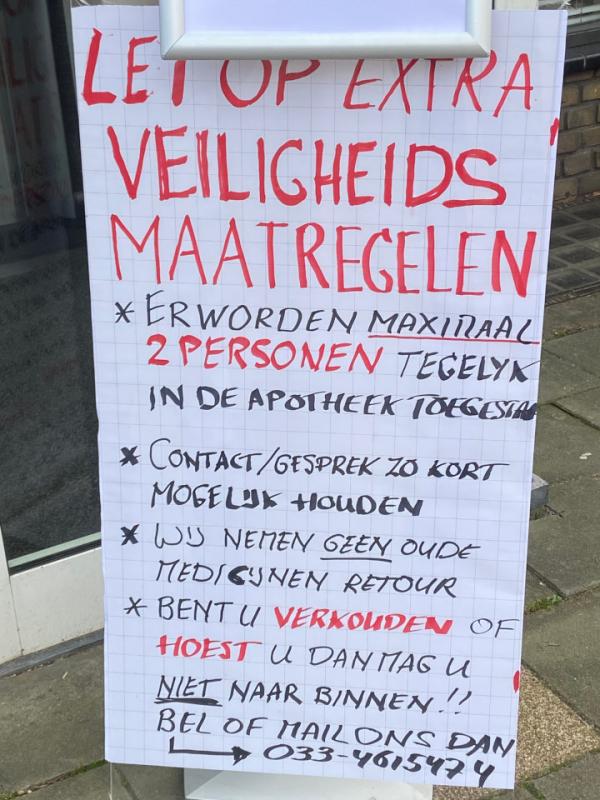 LET OP EXTRA
VEILIGHEIDS
MAATREGELEN
* ER WORDEN MAXIMAAL
2 PERSONEN TEGELYK
IN DE APOTHEEK TOEGESTAAN
* CONTACT/GESPREK ZO KORT
MOGELIJK HOUDEN
* WIJ NEMEN GEEN OUDE
MEDICIJNEN RETOUR
* BENT U VERKOUDEN OF
HOEST U DAN MAG U
NIET NAAR BINNEN!!
BEL OF MAIL ONS DAN
033-4615474